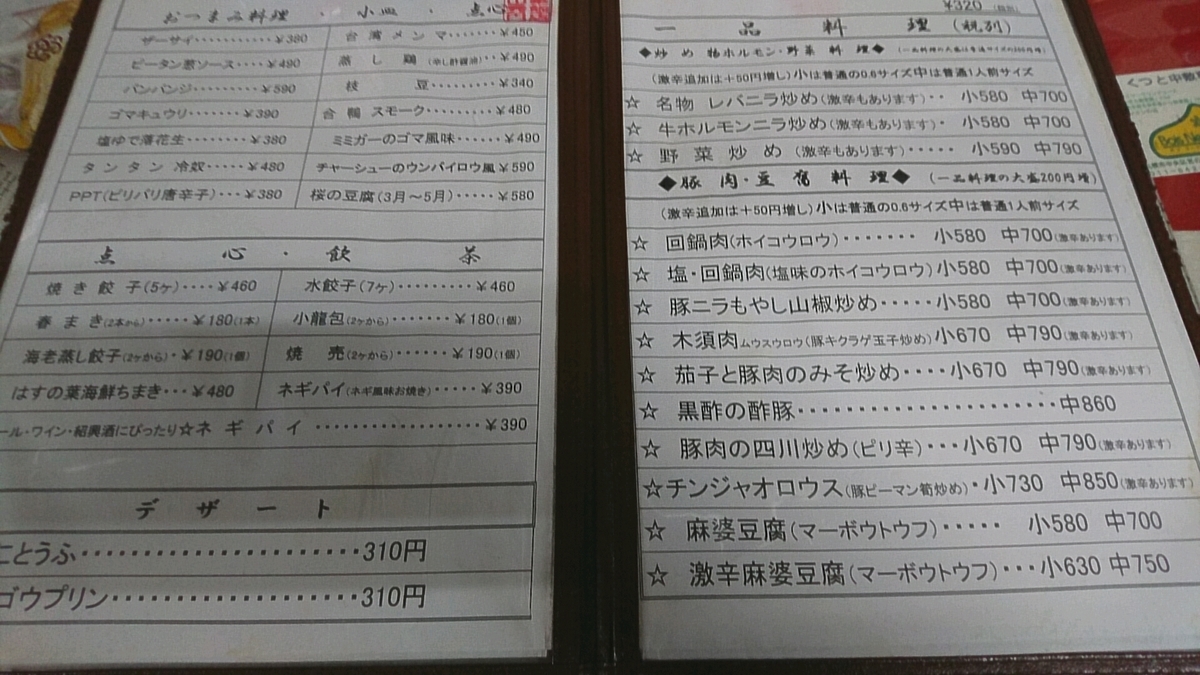 おつまみ料理 ・ 小皿 ・ 点心
ザーサイ・・・・・・・・・・・¥380 台湾メンマ・・・・・・・¥450
ピータン葱ソース・・・・¥490 蒸し鶏(辛し酢醤油)・・・・¥490
バンバンジ・・・・・・・・・¥590 枝豆・・・・・・・・・・・¥340
ゴマキュウリ・・・・・・・¥390 合鴨スモーク・・・・・¥480
塩ゆで落花生・・・・・・・¥380 ミミガーのゴマ風味・・・・・¥490
タンタン冷奴・・・・・¥480 チャーシューのウンパイロウ風¥590
PPT(ピリパリ唐辛子)・・・¥380 桜の豆腐(3月~5月)・・・・¥580
点心・飲茶
焼き餃子(5ヶ)・・・・¥460 水餃子(7ヶ)・・・・・・・・・¥460
春まき(2本から)・・・・・¥180(1本) 小龍包(2ヶから)・・・・・・・¥180(1個)
海老蒸し餃子(2ヶから)・¥190(1個) 焼売(2ヶから)・・・・・・¥190(1個)
はすの葉海鮮ちまき・・・¥480 ネギパイ(ネギ風味お焼き)・・・・・¥390
ール・ワイン・紹興酒にぴったり☆ネギパイ・・・・・・・・・・・・・・・・・¥390
デザート
ことうふ・・・・・・・・・・・・・・・・・・・・・・・310円
ゴウプリン・・・・・・・・・・・・・・・・・・・・310円
¥320
一品料理(税別)
◆炒め物ホルモン・野菜料理◆(一品料理の大盛は200円増)
(激辛追加は+50円増し)小は普通の0.6サイズ中は普通1人前サイズ
☆ 名物 レバニラ炒め(激辛もあります)・・ 小580 中700
☆ 牛ホルモンニラ炒め(激辛もあります)・ 小580 中700
☆ 野菜炒め(激辛もあります)・・・・・ 小590 中790
◆豚肉・豆腐料理◆(一品料理の大盛200円増)
(激辛追加は+50円増し)小は普通の0.6サイズ中は普通1人前サイズ
☆ 回鍋肉(ホイコウロウ)・・・・・・・ 小580 中700(激辛あります)
☆ 塩・回鍋肉(塩味のホイコウロウ)小580 中700(激辛あります)
☆ 豚ニラもやし山椒炒め・・・・・小580 中700(激辛あります)
☆ 木須肉ムウスウロウ(豚キクラゲ玉子炒め)小670 中790(激辛あります)
☆ 茄子と豚肉のみそ炒め・・・・小670 中790(激辛あります)
☆ 黒酢の酢豚・・・・・・・・・・・・・・・・・・・・・・中860
☆ 豚肉の四川炒め(ピリ辛)・・・小670 中790(激辛あります)
☆チンジャオロウス(豚ピーマン筍炒め)・小730 中850(激辛あります)
☆ 麻婆豆腐(マーボウトウフ)・・・・・ 小580 中700
☆ 激辛麻婆豆腐(マーボウトウフ)・・・小630 中750